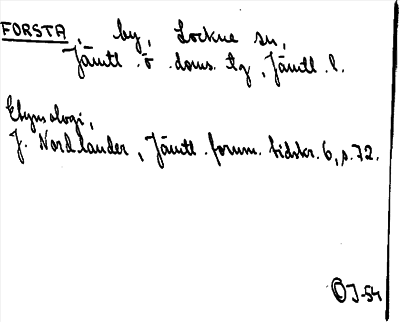 FORSTA, by, Lockne sn,
Jämtl. ö. doms. tg, Jämtl. l.
Etymologi,
J. Nordlander, Jämtl. fornm. tidskr. 6, s. 72.
OJ-54